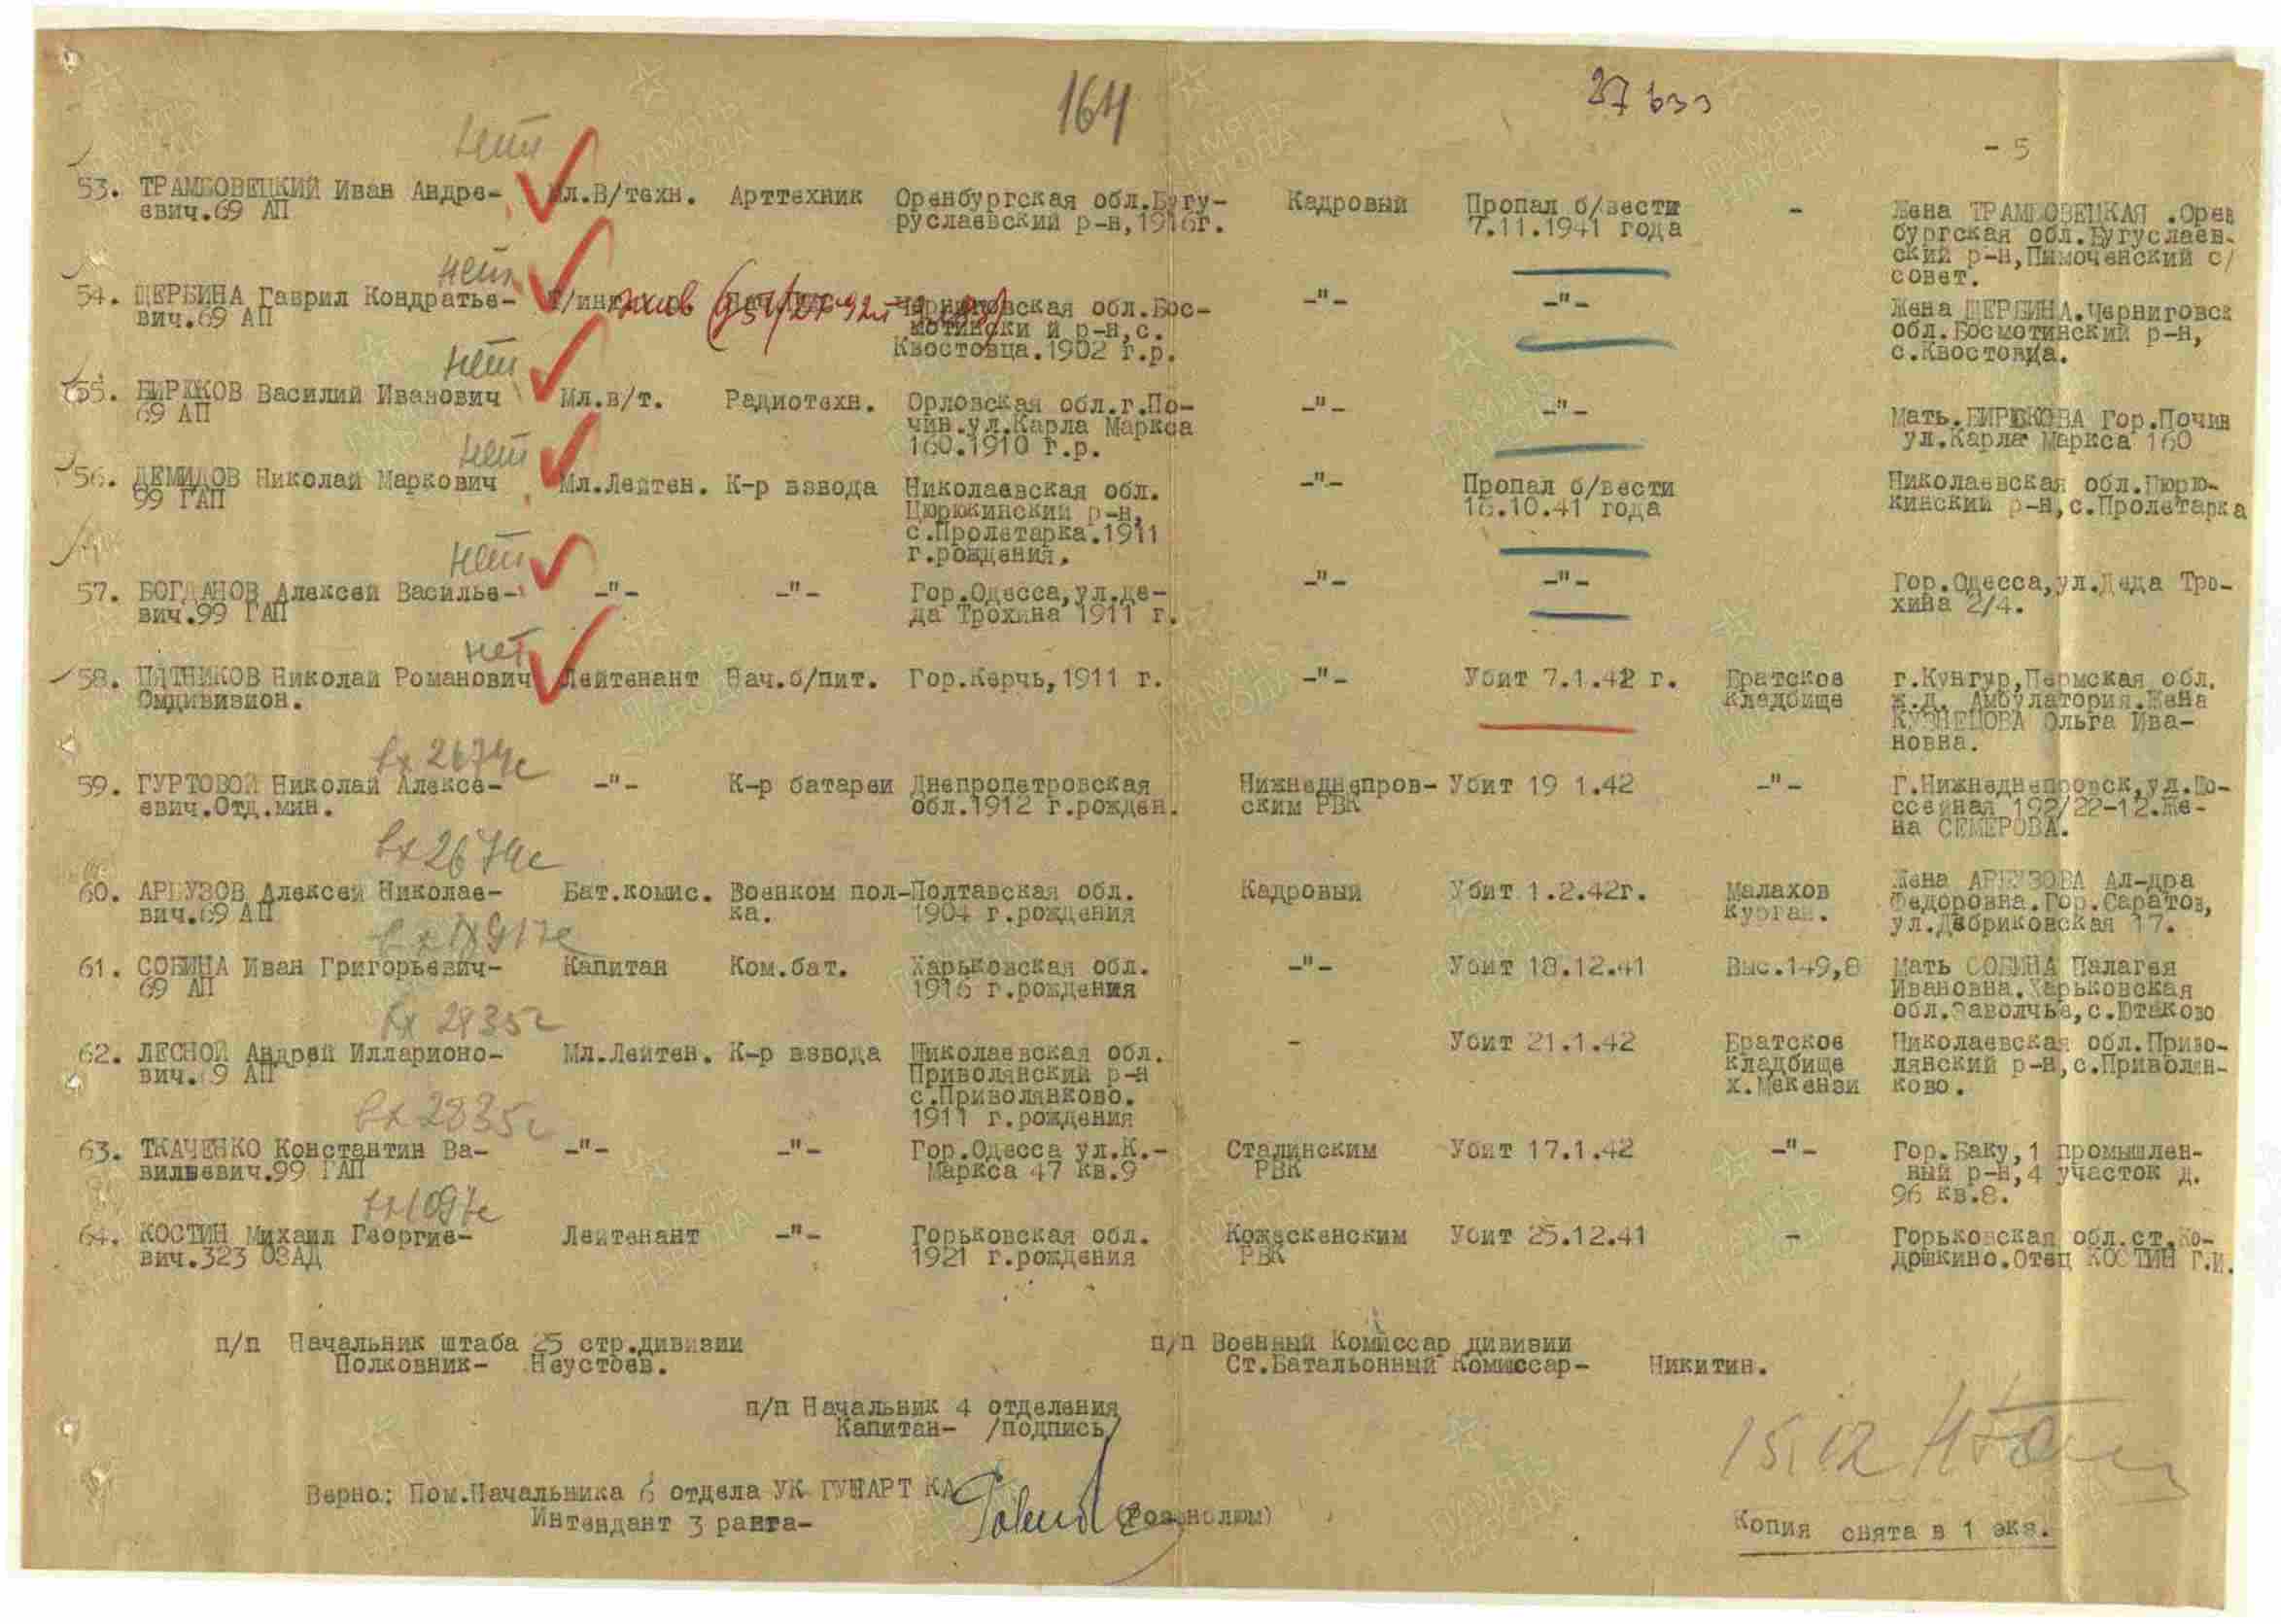 164
27633
- 5
нет
53. ТРАМБОВЕЦКИЙ Иван Андре- Мл.В/техн. Арттехник Оренбургская обл.Бугу- Кадровый Пропал б/вести - Жена ТРАМБОВЕЦКАЯ .Орен
евич.69 АП руслаевский р-н,1916г. 7.11.1941 года бургская обл.Бугуслаев-
ский р-н,Пимоченский с/
совет.
нет
54. ЩЕРБИНА Гаврил Кондратье- Черниговская обл.Бос- -"- -"- Жена ЩЕРБИНА.Черниговск
вич.69 АП мотински й р-н,с. обл.Босмотинский р-н,
Квостовца.1902 г.р. с.Квостовца.
нет
55. БИРЮКОВ Василий Иванович Мл.в/т. Радиотехн. Орловская обл.г.По- -"- -"- Мать.БИРЮКОВА Гор.Почин
69 АП чин.ул.Карла Маркса ул.Карла Маркса 160
160.1910 г.р.
нет
56. ДЕМИДОВ Николай Маркович Мл.Лейтен. К-р взвода Николаевская обл. -"- Пропал б/вести Николаевская обл.Цюрю-
99 ГАП Цюрюкинский р-н, 16.10.41 года кинский р-н,с.Пролетарка
с.Пролетарка.1911
г.рождения.
нет
57. БОГДАНОВ Алексей Василье- -"- -"- Гор.Одесса,ул.де- -"- -"- Гор.Одесса,ул.Деда Тро-
вич.99 ГАП да Трохина 1911 г. хина 2/4.
нет
58. ПЯТНИКОВ Николай Романович Лейтенант Нач.б/пит. Гор.Керчь,1911 г. -"- Убит 7.1.42 г. Братское г.Кунгур,Пермская обл.
Омдивизион. кладбище ж.д. Амбулатория.Жена
КУЗНЕЦОВА Ольга Ива-
новна.
вх 2674с
59. ГУРТОВОЙ Николай Алексе- -"- К-р батареи Днепропетровская Нижнеднепров- Убит 19 1.42 -"- Г.Нижнеднепровск,ул.Шо-
евич.Отд.мин. обл.1912 г.рожден. ским РВК ссейная 192/22-12.Же-
на СЕМЕРОВА.
вх 2674с
60. АРБУЗОВ Алексей Николае- Бат.комис. Военком пол- Полтавская обл. Кадровый Убит 1.2.42г. Малахов Жена АРБУЗОВА Ал-дра
вич.69 АП ка. 1904 г.рождения Курган. Федоровна.Гор.Саратов,
ул.Дабриковская 17.
61. СОБИНА Иван Григорьевич- Капитан Ком.бат. Харьковская обл. -"- Убит 18.12.41 Выс.149,8 Мать СОБИНА Палагея
69 АП 1916 г.рождения Ивановна.Харьковская
обл.Заволчье,с.Ютаково
вх 2835с
62. ЛЕСНОЙ Андрей Илларионо- Мл.Лейтен. К-р взвода Николаевская обл. - Убит 21.1.42 Братское Николаевская обл.Приво-
вич. 9 АП Приволянский р-н кладбище лянский р-н,с.Приволян-
с.Приволянково. х.Мекензи ково.
1911 г.рождения
вх 2835с
63. ТКАЧЕНКО Константин Ва- -"- -"- Гор.Одесса ул.К.- Сталинским Убит 17.1.42 -"- Гор.Баку,1 промышлен-
вильевич.99 ГАП Маркса 47 кв.9 РВК ный р-н,4 участок д.
96 кв.8.
вх1097с
64. КОСТИН Михаил Георгие- Лейтенант -"- Горьковская обл. Кожескенским Убит 25.12.41 - Горьковская обл.ст.Ко-
вич.323 ОЗАД 1921 г.рождения РВК дошкино.Отец КОСТИН Г.И.
п/п Начальник штаба 25 стр.дивизии п/п Военный Комиссар дивизии
Полковник- Неустоев. Ст.Батальонный Комиссар- Никитин.
п/п Начальник 4 отделения
Капитан- /подпись/
15.12
Верно: Пом.Начальника 6 отдела УК ГУНАРТ КА
Интендант 3 ранга-
Копия снята в 1 экз.